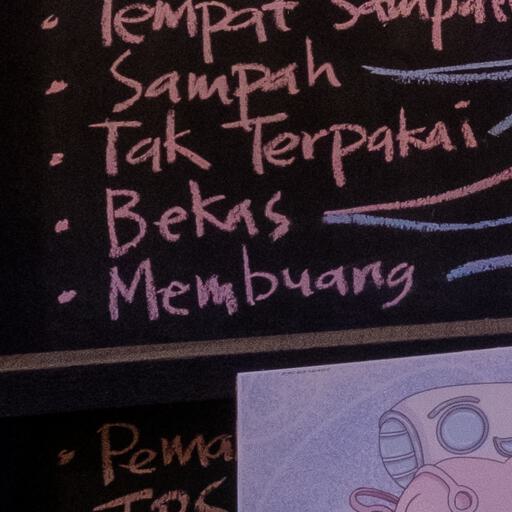 • Tempat Sampah
• Sampah
• Tak Terpakai
• Bekas
• Membuang
• Pema
TPS